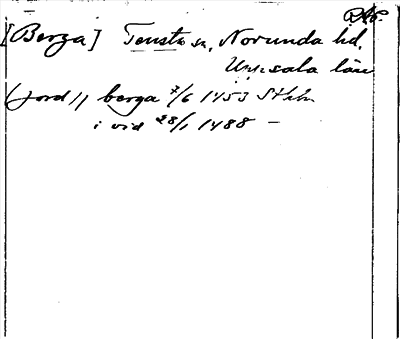 [Berga] Tensta sn, Norunda hd,
Uppsala län
(jord i) berga 7/6 1453 Sthlm
i vid 28/1 1488 —